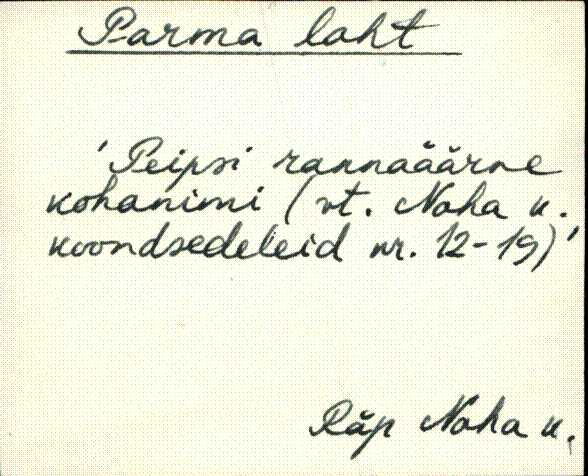 Parma laht
'Peipsi rannaäärne
kohanimi (vt. Naha k.
koondsedeleid nr. 12-19)'
Räp Naha k.